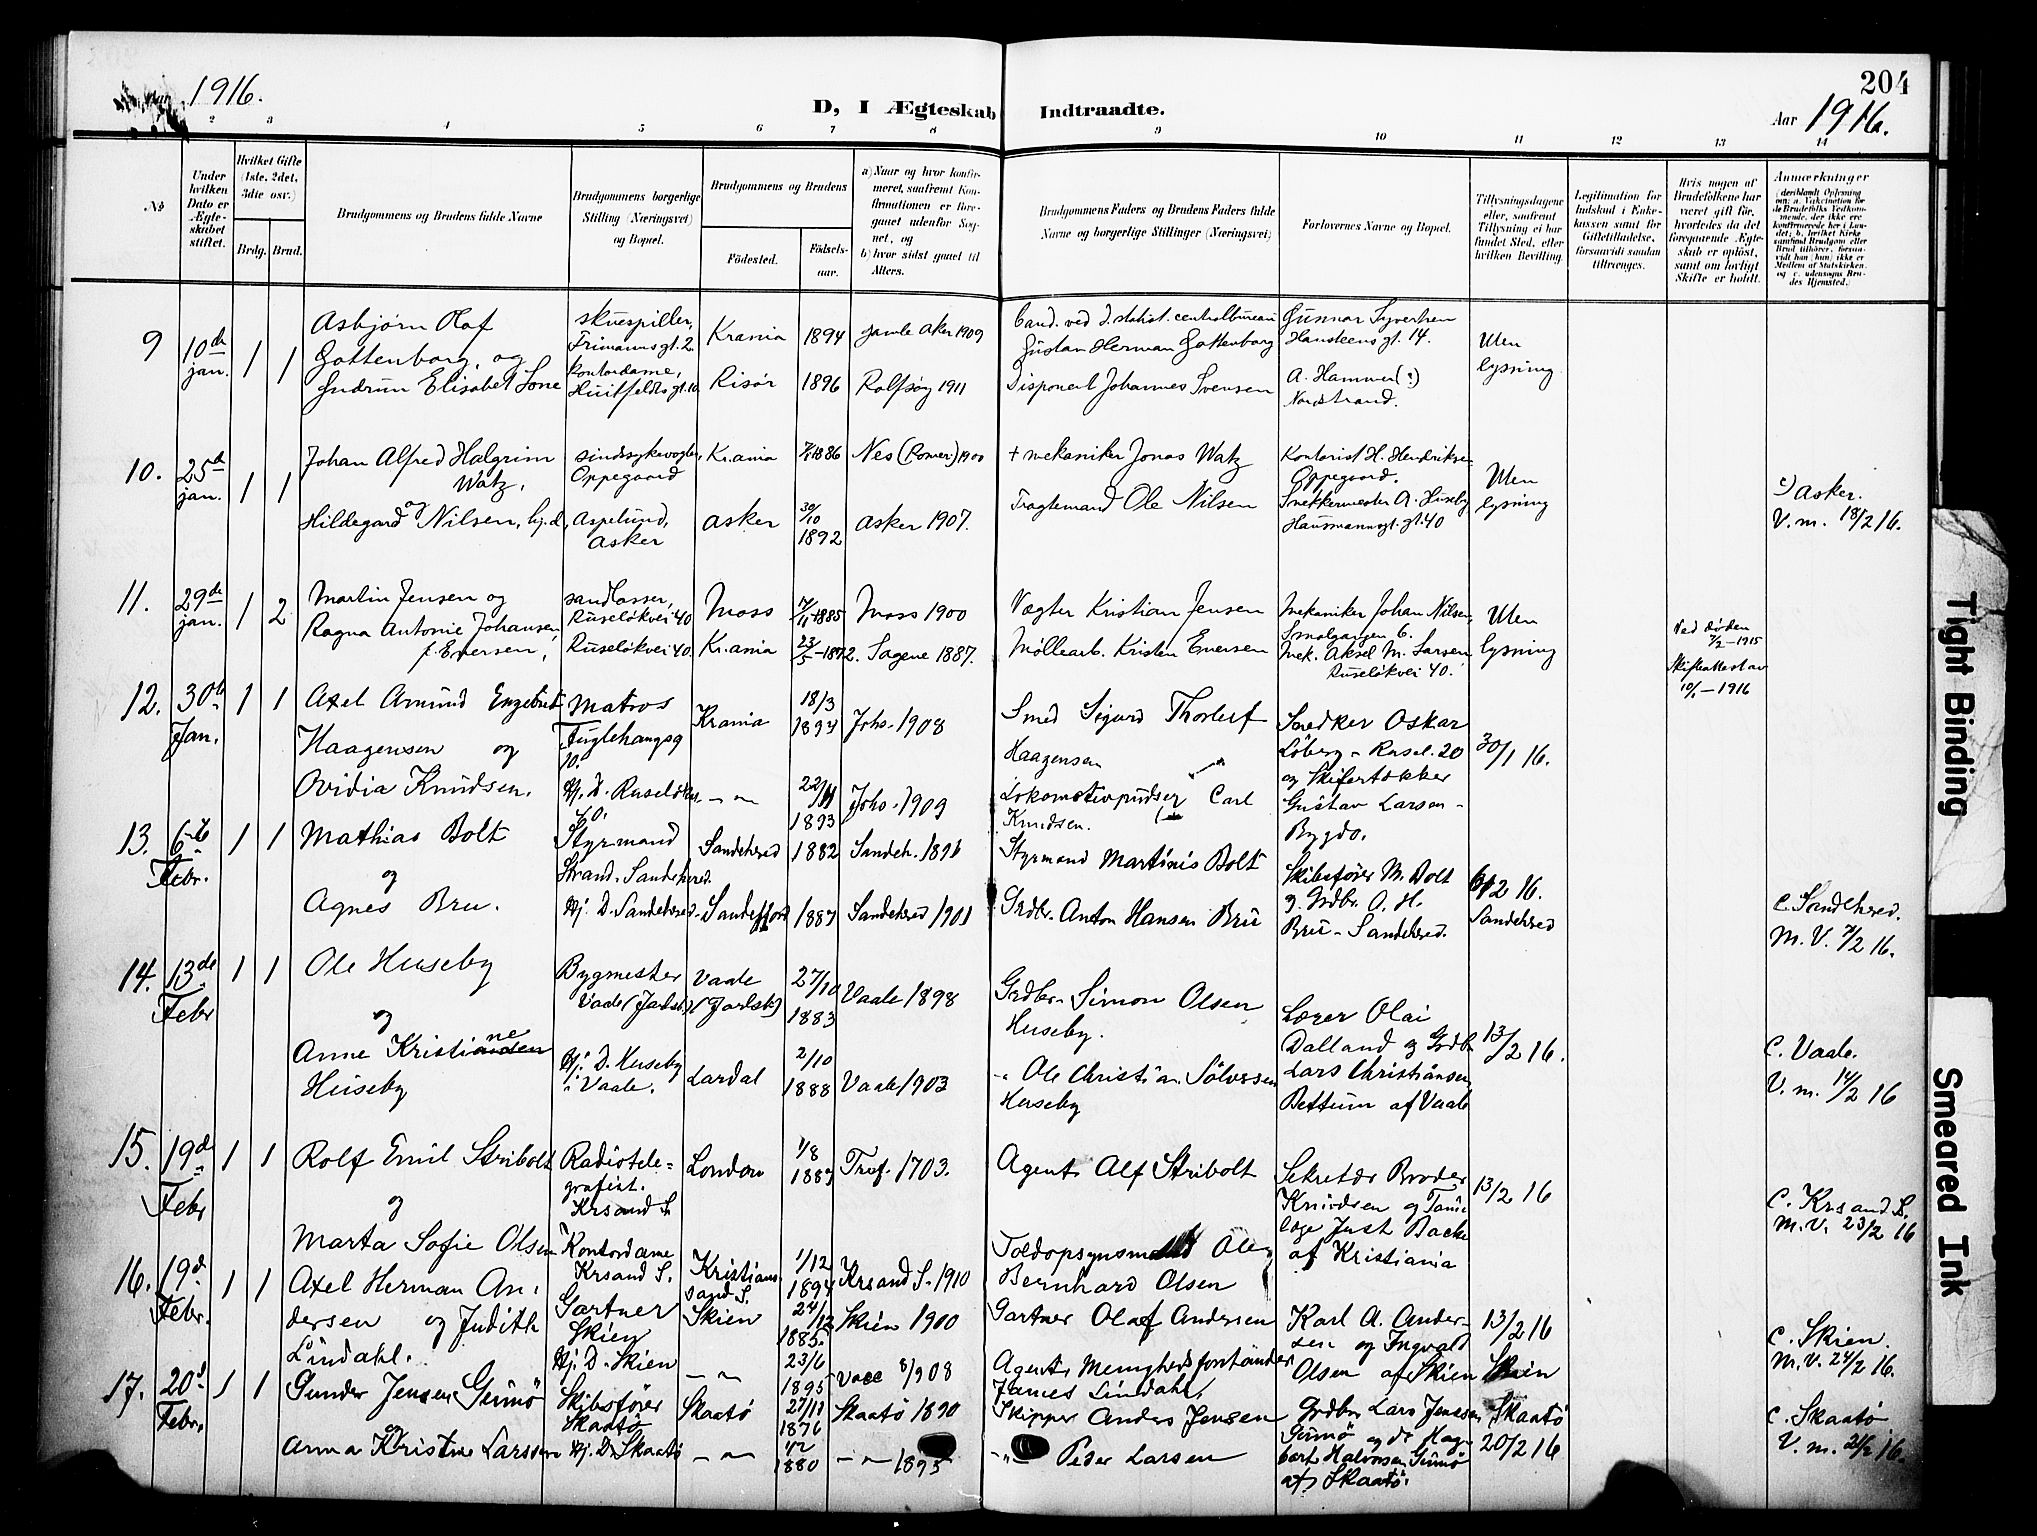 204
Aar 1916.
D, I Ægteskab Indtraadte.
Aar 1916.
2 3 4 5 6 7 8 9 10 11 12 13 14
No
Under hvilken Dato er Ægteskabet stiftet.
Hvilket Gifte (1ste, 2det, 3die osv.)
Brdg. Brud.
Brudgommens og Brudens fulde Navne
Brudgommens borgerlige Stilling (Næringsvei) og Bopæl.
Brudgommens og Brudens
Födested.
Födselsaar.
a) Naar og hvor konfirmeret, saafremt Konfirmationen er foregaaet udenfor Sognet, og
b) hvor sidst gaaet til Alters.
Brudgommens Faders og Brudens Faders fulde Navne og borgerlige Stillinger (Næringsvei)
Forlovernes Navne og Bopæl.
Tillysningsdagene eller, saafremt Tillysning ei har fundet Sted, efter hvilken Bevilling.
Legitimation for Indskud i Enkekassen samt for Giftetilladelse, forsaavidt saadan tiltrænges.
Hvis nogen af Brudefolkene har været gift før, hvorledes da det foregaaende Ægteskab er opløst, samt om lovligt Skifte er holdt.
Anmærkninger
9 10de jan. 1 1
Asbjørn Olaf
Gottenborg, og
Gudrun Elisabet Lone
skuespiller,
Frimannsgt. 2
kontordame,
Huitfeldtsgt. 10
Krania 1894 gamle Aker 1909
Risör 1896 Rolfsøy 1911
Cand. ved d. statist. centralbureau
Gustav Herman Gottenborg
Disponent Johannes Svensen
Gunnar Syvertsen
Hansteensgt. 14.
A. Hammer (:)
Nordstrand.
Uten
lysning
10. 25de jan. 1 1
Johan Alfred Halgrim
Watz,
og
Hildegard Nilsen, hj.d.,
sindssykevogter,
Oppegaard
Aspelund,
Asker
Kr.ania 1886 Nes (Romer.) 1900
Asker 30/10 1892 Asker 1907.
+ mekaniker Jonas Watz
Fragtemand Ole Nilsen
Kontorist H. Hendriksen
Oppegaard.
Snekkermester A. Huseby
Hausmannsgt. gt. 40
Uten
lysning
c) Asker.
V. m. 18/2 16.
11. 29de jan. 1 2
Martin Jensen og
Ragna Antonie Johansen,
f. Evensen,
sandlasser,
Ruseløkvei 40
Ruseløkvei 40.
Moss 1885 Moss 1900
Kr.ania 23/5-1872. Sagene 1887.
Vægter Kristian Jensen
Møllearb. Kristen Evensen
Mekaniker Johan Nilsen,
Smalgangen 6.
Mek. Aksel M. Larsen
Ruseløkvei 40.
Uten
lysning
Ved døden
7/2-1915
Skifteattest av
10/1-1916
12. 30te Jan. 1 1
Axel Amund Engebret
Haagensen og
Ovidia Knudsen.
Matros
Fuglehaugsg
10.
Hj. D. Ruseløkv.
70.
Krania 18/3 1894 Johs. 1908
- " - 22/11 1893 Johs. 1909
Smed Sigurd Thorleif
Haagensen
Lokomotivpudser Carl
Knudsen.
Snedker Oskar
Löberg - Rusel. 20
og Skifertækker
Gustav Larsen -
Bygdø.
30/1 16.
13. 6te Febr. 1 1
Mathias Bolt
og
Agnes Bru.
Styrmand
Strand. Sandeherred.
Hj. D. Sandeherred.
Sandeherred 1882 Sandeh. 1896
Sandefjord 1887 Sandeherred 1901
Styrmand Martinis Bolt
Grdbr. Anton Hansen Bru
Skibsfører M. Bolt
og Grdbr. A. H.
Bru - Sandeherred.
6/2 16.
Sandeherred
C. Sandeherred.
M. V. 7/2 16.
14. 13de Febr 1 1
Ole Huseby
og
Anne Kristiane
Huseby
Bygmester
Vaale (Jarlsb.)
Hj. D. Huseby
i Vaale.
Vaale (Jarlsb.) 27/10 1883 Vaale 1898
Lardal 2/10 1888 Vaale 1903
Grdbr. Simon Olsen
Huseby.
- " Ole Christian Sölvesen
Huseby
Lærer Olai
Dalland og Grdb.
Lars Christiansen
Bettum af Vaale
13/2 16.
C. Vaale.
V. m. 14/2 16
15. 19de Febr 1 1
Rolf Emil Stribolt
og
Marta Sofie Olsen
Radiotele=
grafist.
Krsand S.
Kontordame
Krsand S.
London 1/8 1887 Tref. 1703.
Kristiansand S. 1/12 1894 Krsand S. 1910
Agent Alf Stribolt
Toldopsynsmand Ole
Bernhard Olsen
Sekretær Broder
Knudsen og Tand
læge Just Backe
af Kristiania
13/2 16
C. Krsand S.
M. V. 23/2 16
16. 19d. Febr. 1 1
Axel Herman An-
dersen og Judith
Lindahl.
Gartner
Skien
Hj. D. Skien
Skien 24/12 1885. Skien 1900
- " - 23/6 1895 8/908
Gartner Olaf Andersen
Agent Menighedsforstander
James Lindahl.
Karl A. Ander-
sen og Ingvald
Olsen af Skien
13/2 16
Skien
C. Skien.
M. V. 24/2 16.
17. 20d. Febr. 1 1
Gunder Jensen Gumö
og
Anna Kristine Larssen
Skibsfører
Skaatø
Hj. D. Skaatø
Skaatø 27/11 1876 Skaatø 1890
- " - 1880 - " - 1895
Skipper Anders Jensen
- " - Peder Larsen
Grdbr. Lars Jensen
Gumö og do Hag-
bart Halvorsen Gumö
af Skaatø.
Skaatø
20/2 16
C. Skaatø
V. m. 21/2 16.
Tight Binding
Smeared Ink